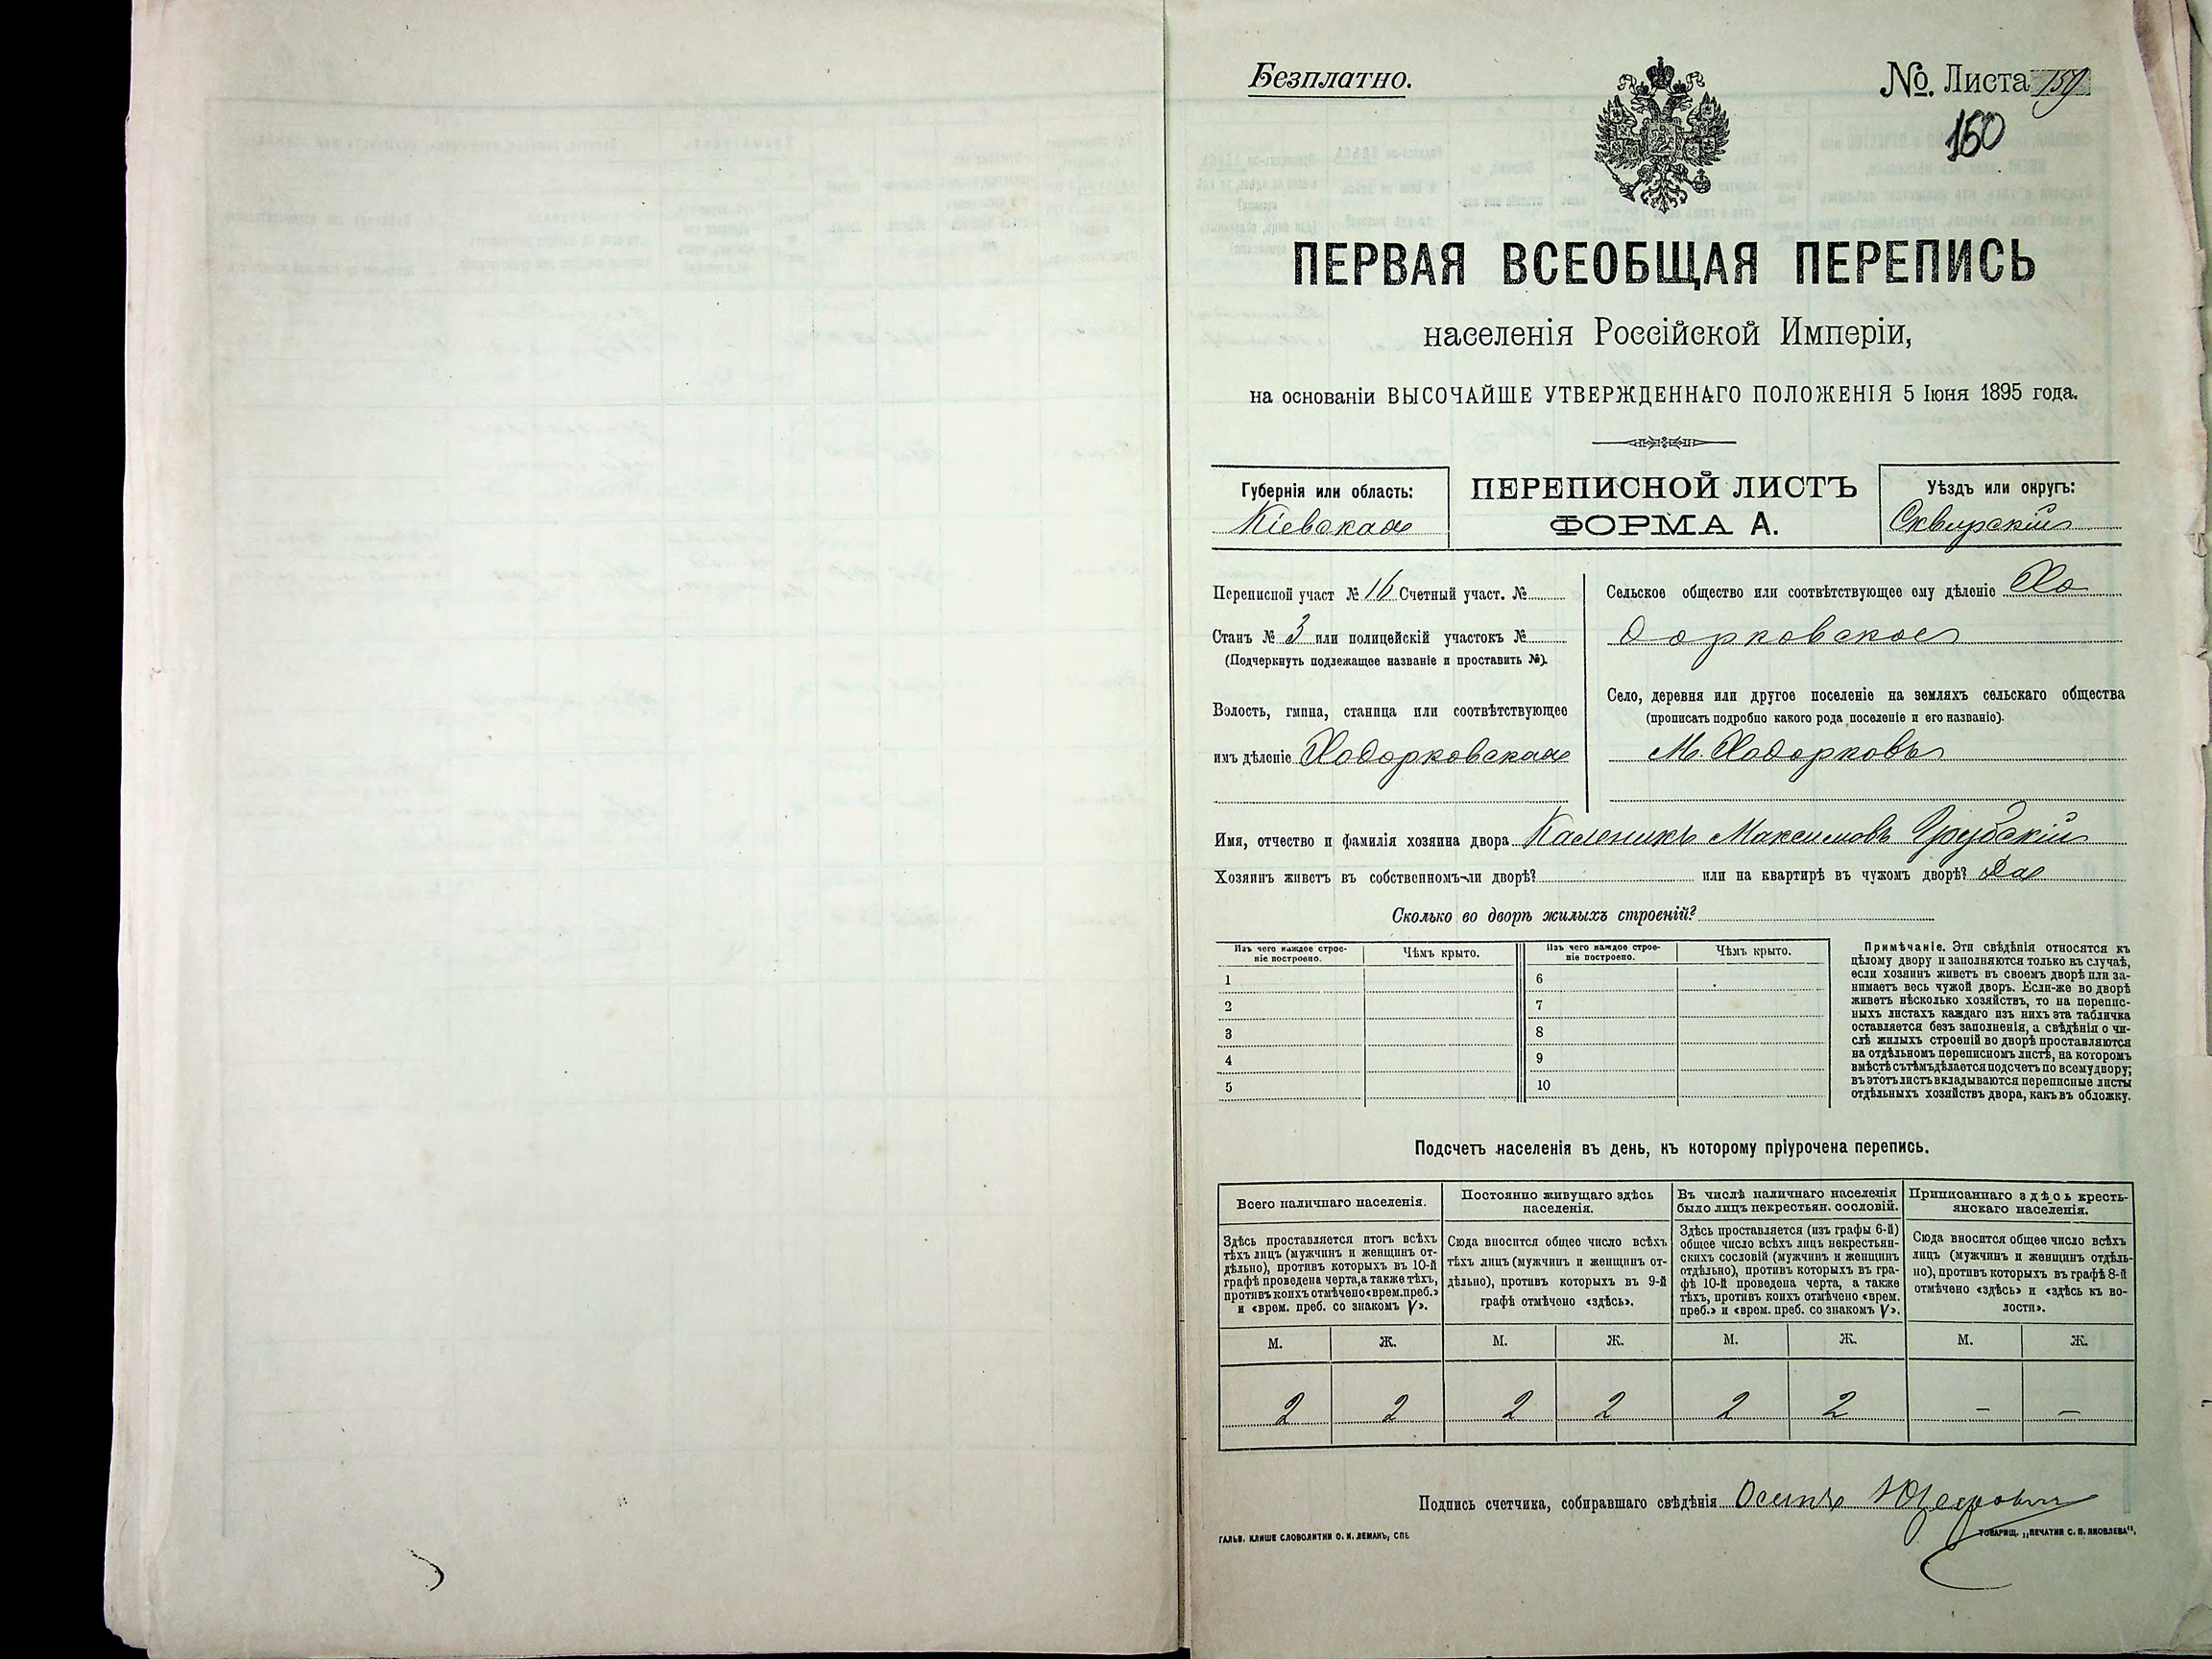 Безплатно.
№. Листа 159
150
ПЕРВАЯ ВСЕОБЩАЯ ПЕРЕПИСЬ
населенія Россійской Имперіи,
на основаніи ВЫСОЧАЙШЕ УТВЕРЖДЕННАГО ПОЛОЖЕНІЯ 5 Іюня 1895 года.
Губернія или область:
Кіевская
ПЕРЕПИСНОЙ ЛИСТЪ
ФОРМА А.
Уѣздъ или округъ:
Сквирскій
Переписной участ № 16 Счетный участ. №
Станъ № 3 или полицейскій участокъ №
(Подчеркнуть подлежащее названіе и проставить №).
Волость, гмина, станица или соотвѣтствующее
имъ дѣленіе Ходорковская
Сельское общество или соотвѣтствующее ему дѣленіе Хо
дорковское
Село, деревня или другое поселеніе на земляхъ сельскаго общества
(прописать подробно какого рода поселеніе и его названіе).
М. Ходорковъ
Имя, отчество и фамилія хозяина двора Каленикъ Максимовъ Грубскій
Хозяинъ живетъ въ собственномъ-ли дворѣ? или на квартирѣ въ чужомъ дворѣ? Да
Сколько во дворѣ жилыхъ строеній?
Изъ чего каждое строе-
ніе построено.
Чѣмъ крыто.
Изъ чего каждое строе-
ніе построено.
Чѣмъ крыто.
1
2
3
4
5
6
7
8
9
10
Примѣчаніе. Эти свѣдѣнія относятся къ
цѣлому двору и заполняются только въ случаѣ,
если хозяинъ живетъ въ своемъ дворѣ или за-
нимаетъ весь чужой дворъ. Если-же во дворѣ
живетъ нѣсколько хозяйствъ, то на перепис-
ныхъ листахъ каждаго изъ нихъ эта табличка
оставляется безъ заполненія, а свѣдѣнія о чи-
слѣ жилыхъ строеній во дворѣ проставляются
на отдѣльномъ переписномъ листѣ, на которомъ
вмѣстѣ съ тѣмъ дѣлается подсчетъ по всему двору;
въ этотъ листъ вкладываются переписные листы
отдѣльныхъ хозяйствъ двора, какъ въ обложку.
Подсчетъ населенія въ день, къ которому пріурочена перепись.
Всего наличнаго населенія.
Здѣсь проставляется итогъ всѣхъ
тѣхъ лицъ (мужчинъ и женщинъ от-
дѣльно), противъ которыхъ въ 10-й
графѣ проведена черта, а также тѣхъ,
противъ коихъ отмѣчено «врем. преб.»
и «врем. преб. со знакомъ V».
Постоянно живущаго здѣсь
населенія.
Сюда вносится общее число всѣхъ
тѣхъ лицъ (мужчинъ и женщинъ от-
дѣльно), противъ которыхъ въ 9-й
графѣ отмѣчено «здѣсь».
Въ числѣ наличнаго населенія
было лицъ некрестьян. сословій.
Здѣсь проставляется (изъ графы 6-й)
общее число всѣхъ лицъ некрестьян-
скихъ сословій (мужчинъ и женщинъ
отдѣльно), противъ которыхъ въ гра-
фѣ 10-й проведена черта, а также
тѣхъ, противъ коихъ отмѣчено «врем.
преб.» и «врем. преб. со знакомъ V».
Приписаннаго здѣсь кресть-
янскаго населенія.
Сюда вносится общее число всѣхъ
лицъ (мужчинъ и женщинъ отдѣль-
но), противъ которыхъ въ графѣ 8-й
отмѣчено «здѣсь» и «здѣсь къ во-
лости».
М. Ж. М. Ж. М. Ж. М. Ж.
2 2 2 2 2 2 – –
Подпись счетчика, собиравшаго свѣдѣнія Осипъ
ГАЛЬВ. КЛИШЕ СЛОВОЛИТНИ О. И. ЛЕМАНЪ, СПБ
ТОВАРИЩ. „ПЕЧАТНЯ С. П. ЯКОВЛЕВА“.